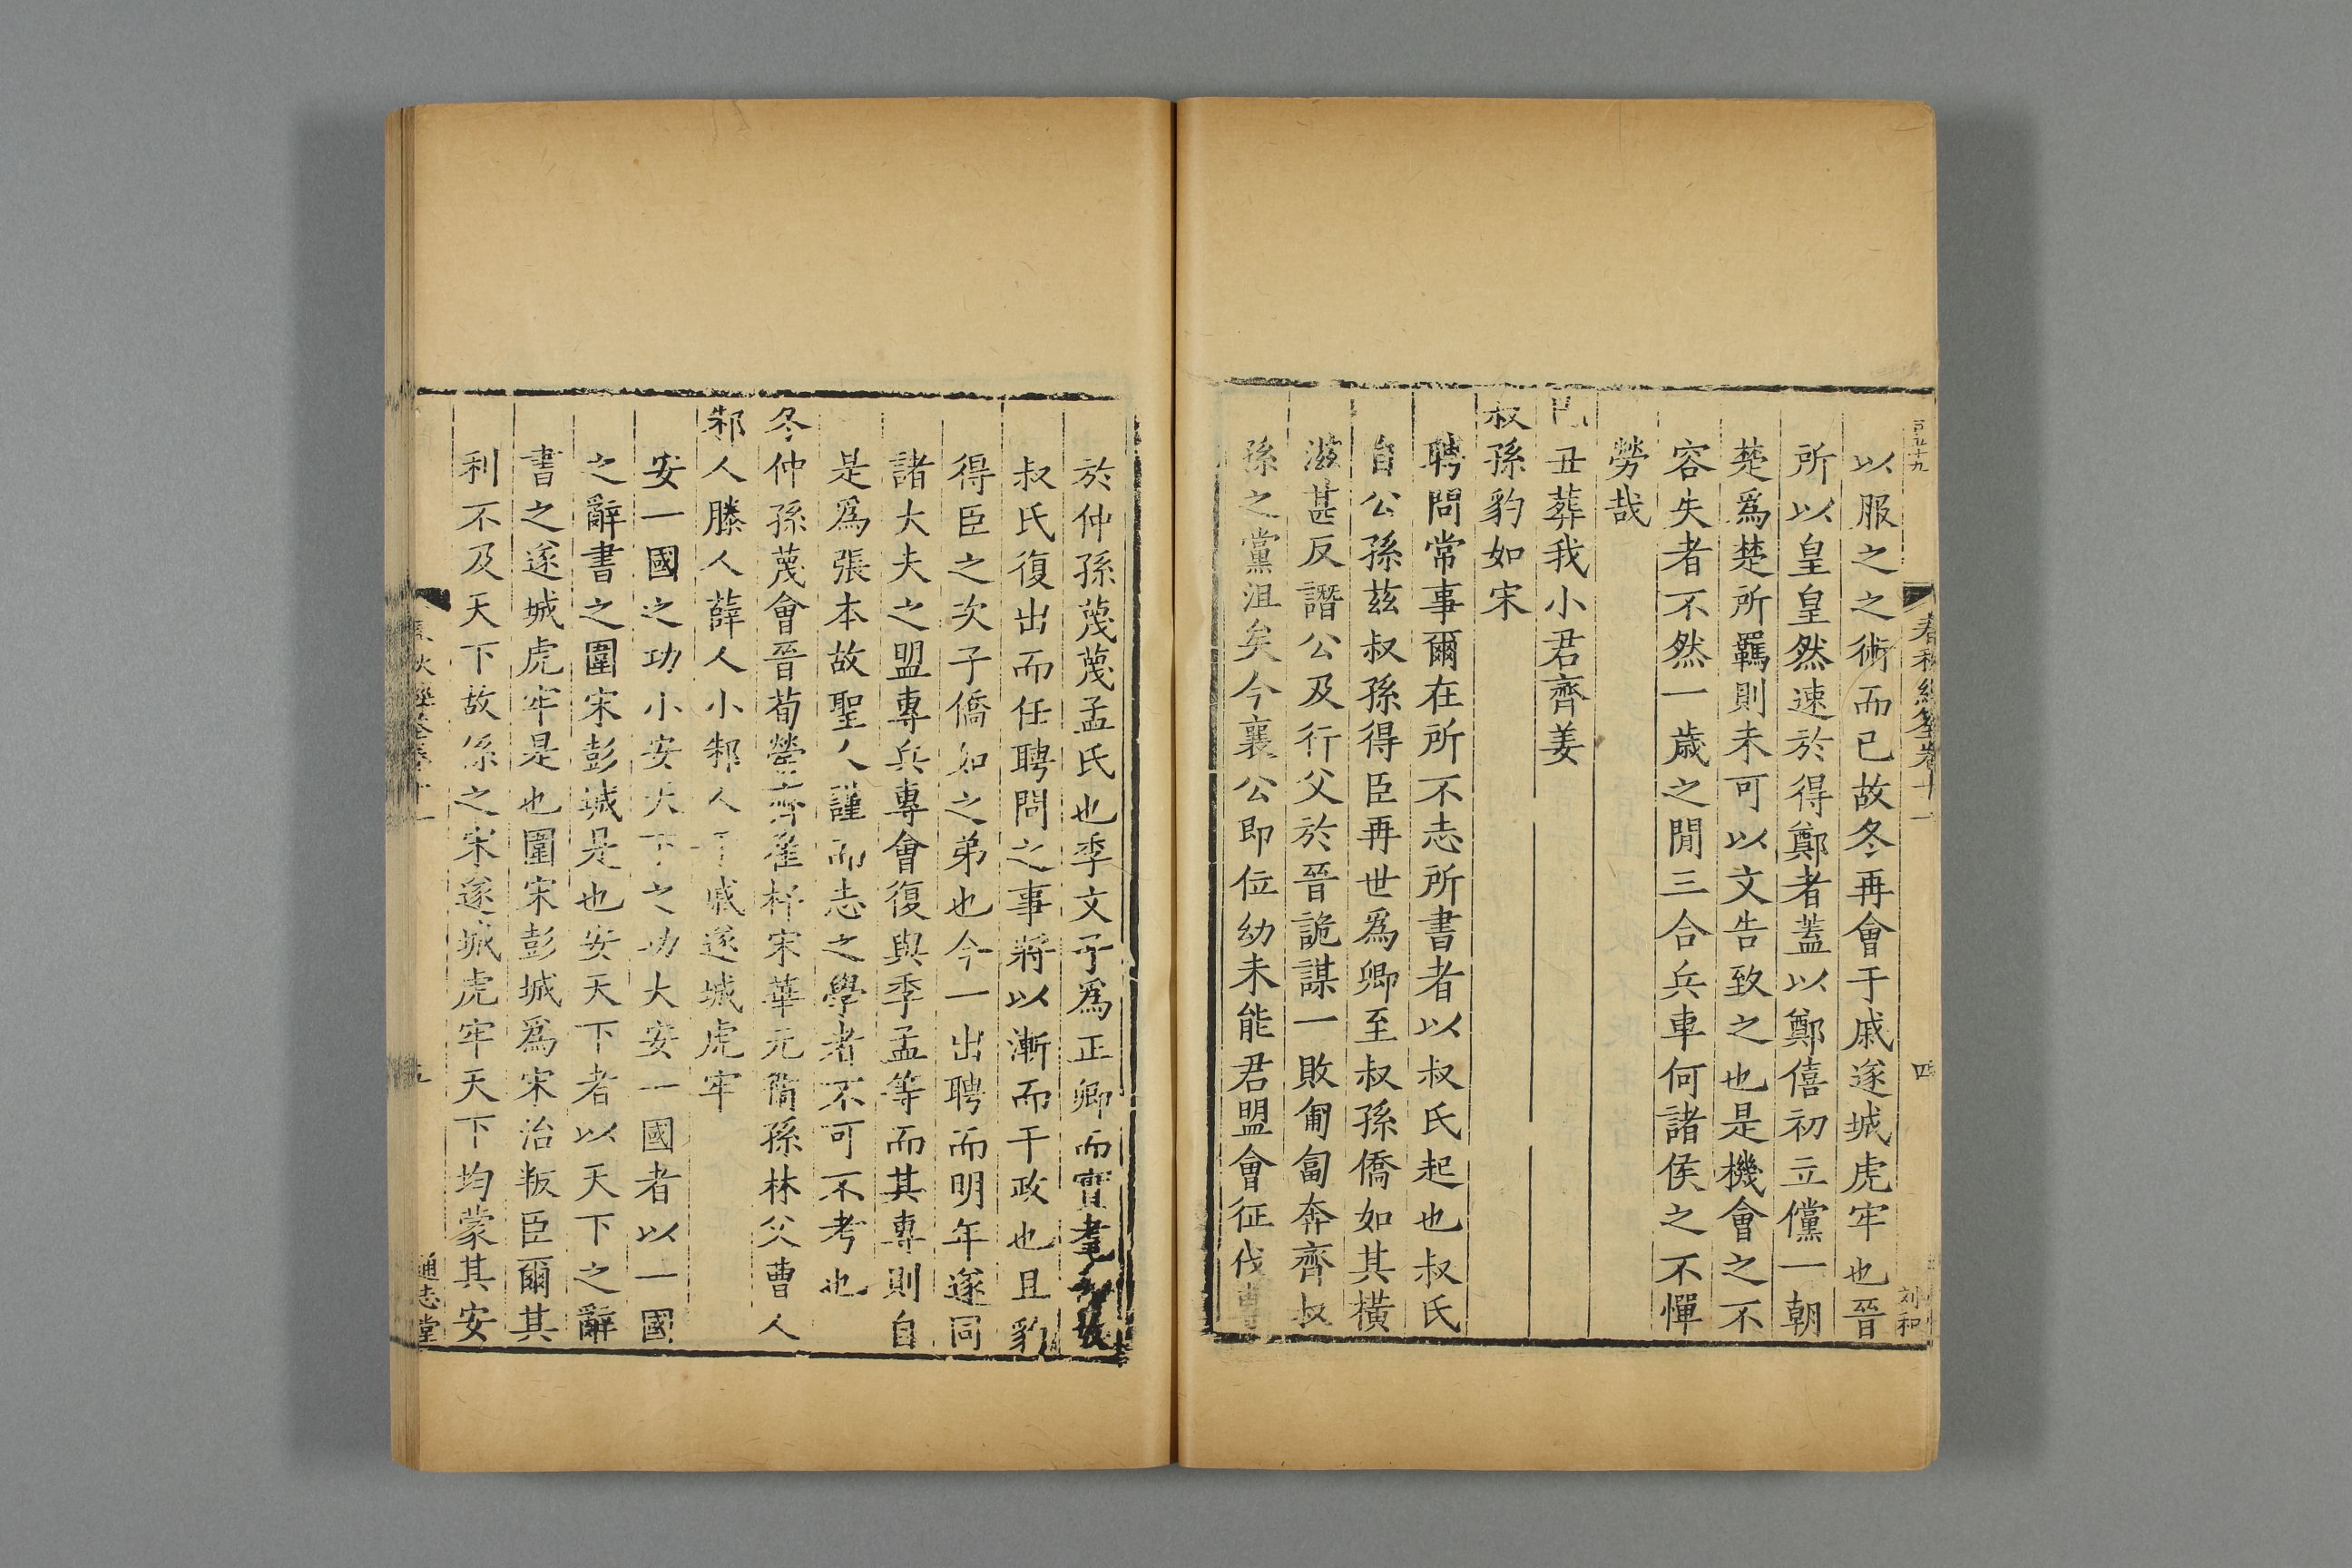 春秋經筌卷十一
四
以服之之術而已故冬再會于戚遂城虎牢也晉
所以皇皇然速於得鄭者蓋以鄭僖初立儻一朝
楚爲楚所羈則未可以文告致之也是機會之不
容失者不然一歲之閒三合兵車何諸侯之不憚
勞哉
丑葬我小君齊姜
叔孫豹如宋
聘問常事爾在所不志所書者以叔氏起也叔氏
自公孫茲叔孫得臣再世爲卿至叔孫僑如其橫
滋甚反譖公及行父於晉詭謀一敗匍匐奔齊叔
孫之黨沮矣今襄公即位幼未能君盟會征伐
於仲孫蔑蔑孟氏也季文子爲正卿而實
叔氏復出而任聘問之事將以漸而干政也且豹
得臣之次子僑如之弟也今一出聘而明年遂同
諸大夫之盟專兵專會復與季孟等而其專則自
是爲張本故聖人謹而志之學者不可不考也
冬仲孫蔑會晉荀罃齊崔杼宋華元衞孫林父曹人
邾人滕人薛人小邾人于戚遂城虎牢
安一國之功小安天下之功大安一國者以一國
之辭書之圍宋彭城是也安天下者以天下之辭
書之遂城虎牢是也圍宋彭城爲宋治叛臣爾其
利不及天下故係之宋遂城虎牢天下均蒙其安
五
通志堂